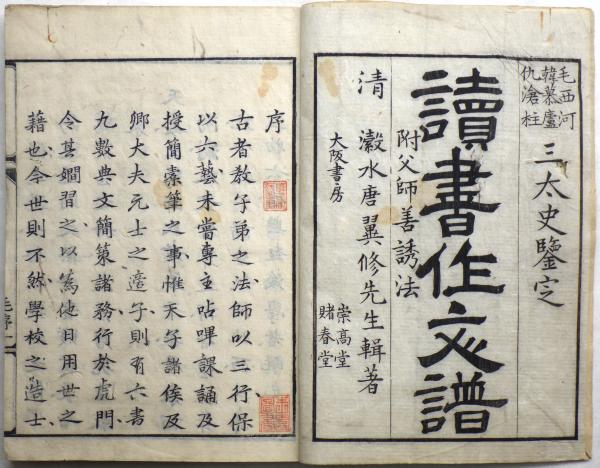 毛西河
韓慕廬
仇滄柱
三太史鑒定
讀書作文譜
附父師善誘法
清 瀫水唐翼修先生輯著
大阪書房
崇高堂
賭春堂
序
古者敎子弟之法師以三行保
以六藝未嘗專主呫嗶課誦及
授簡橐筆之事惟天子諸侯及
卿大夫元士之適子則有六書
九數典文簡策諸務行於虎門
令其嫺習之以為他日用世之
藉也今世則不然學校之造士
毛序 一